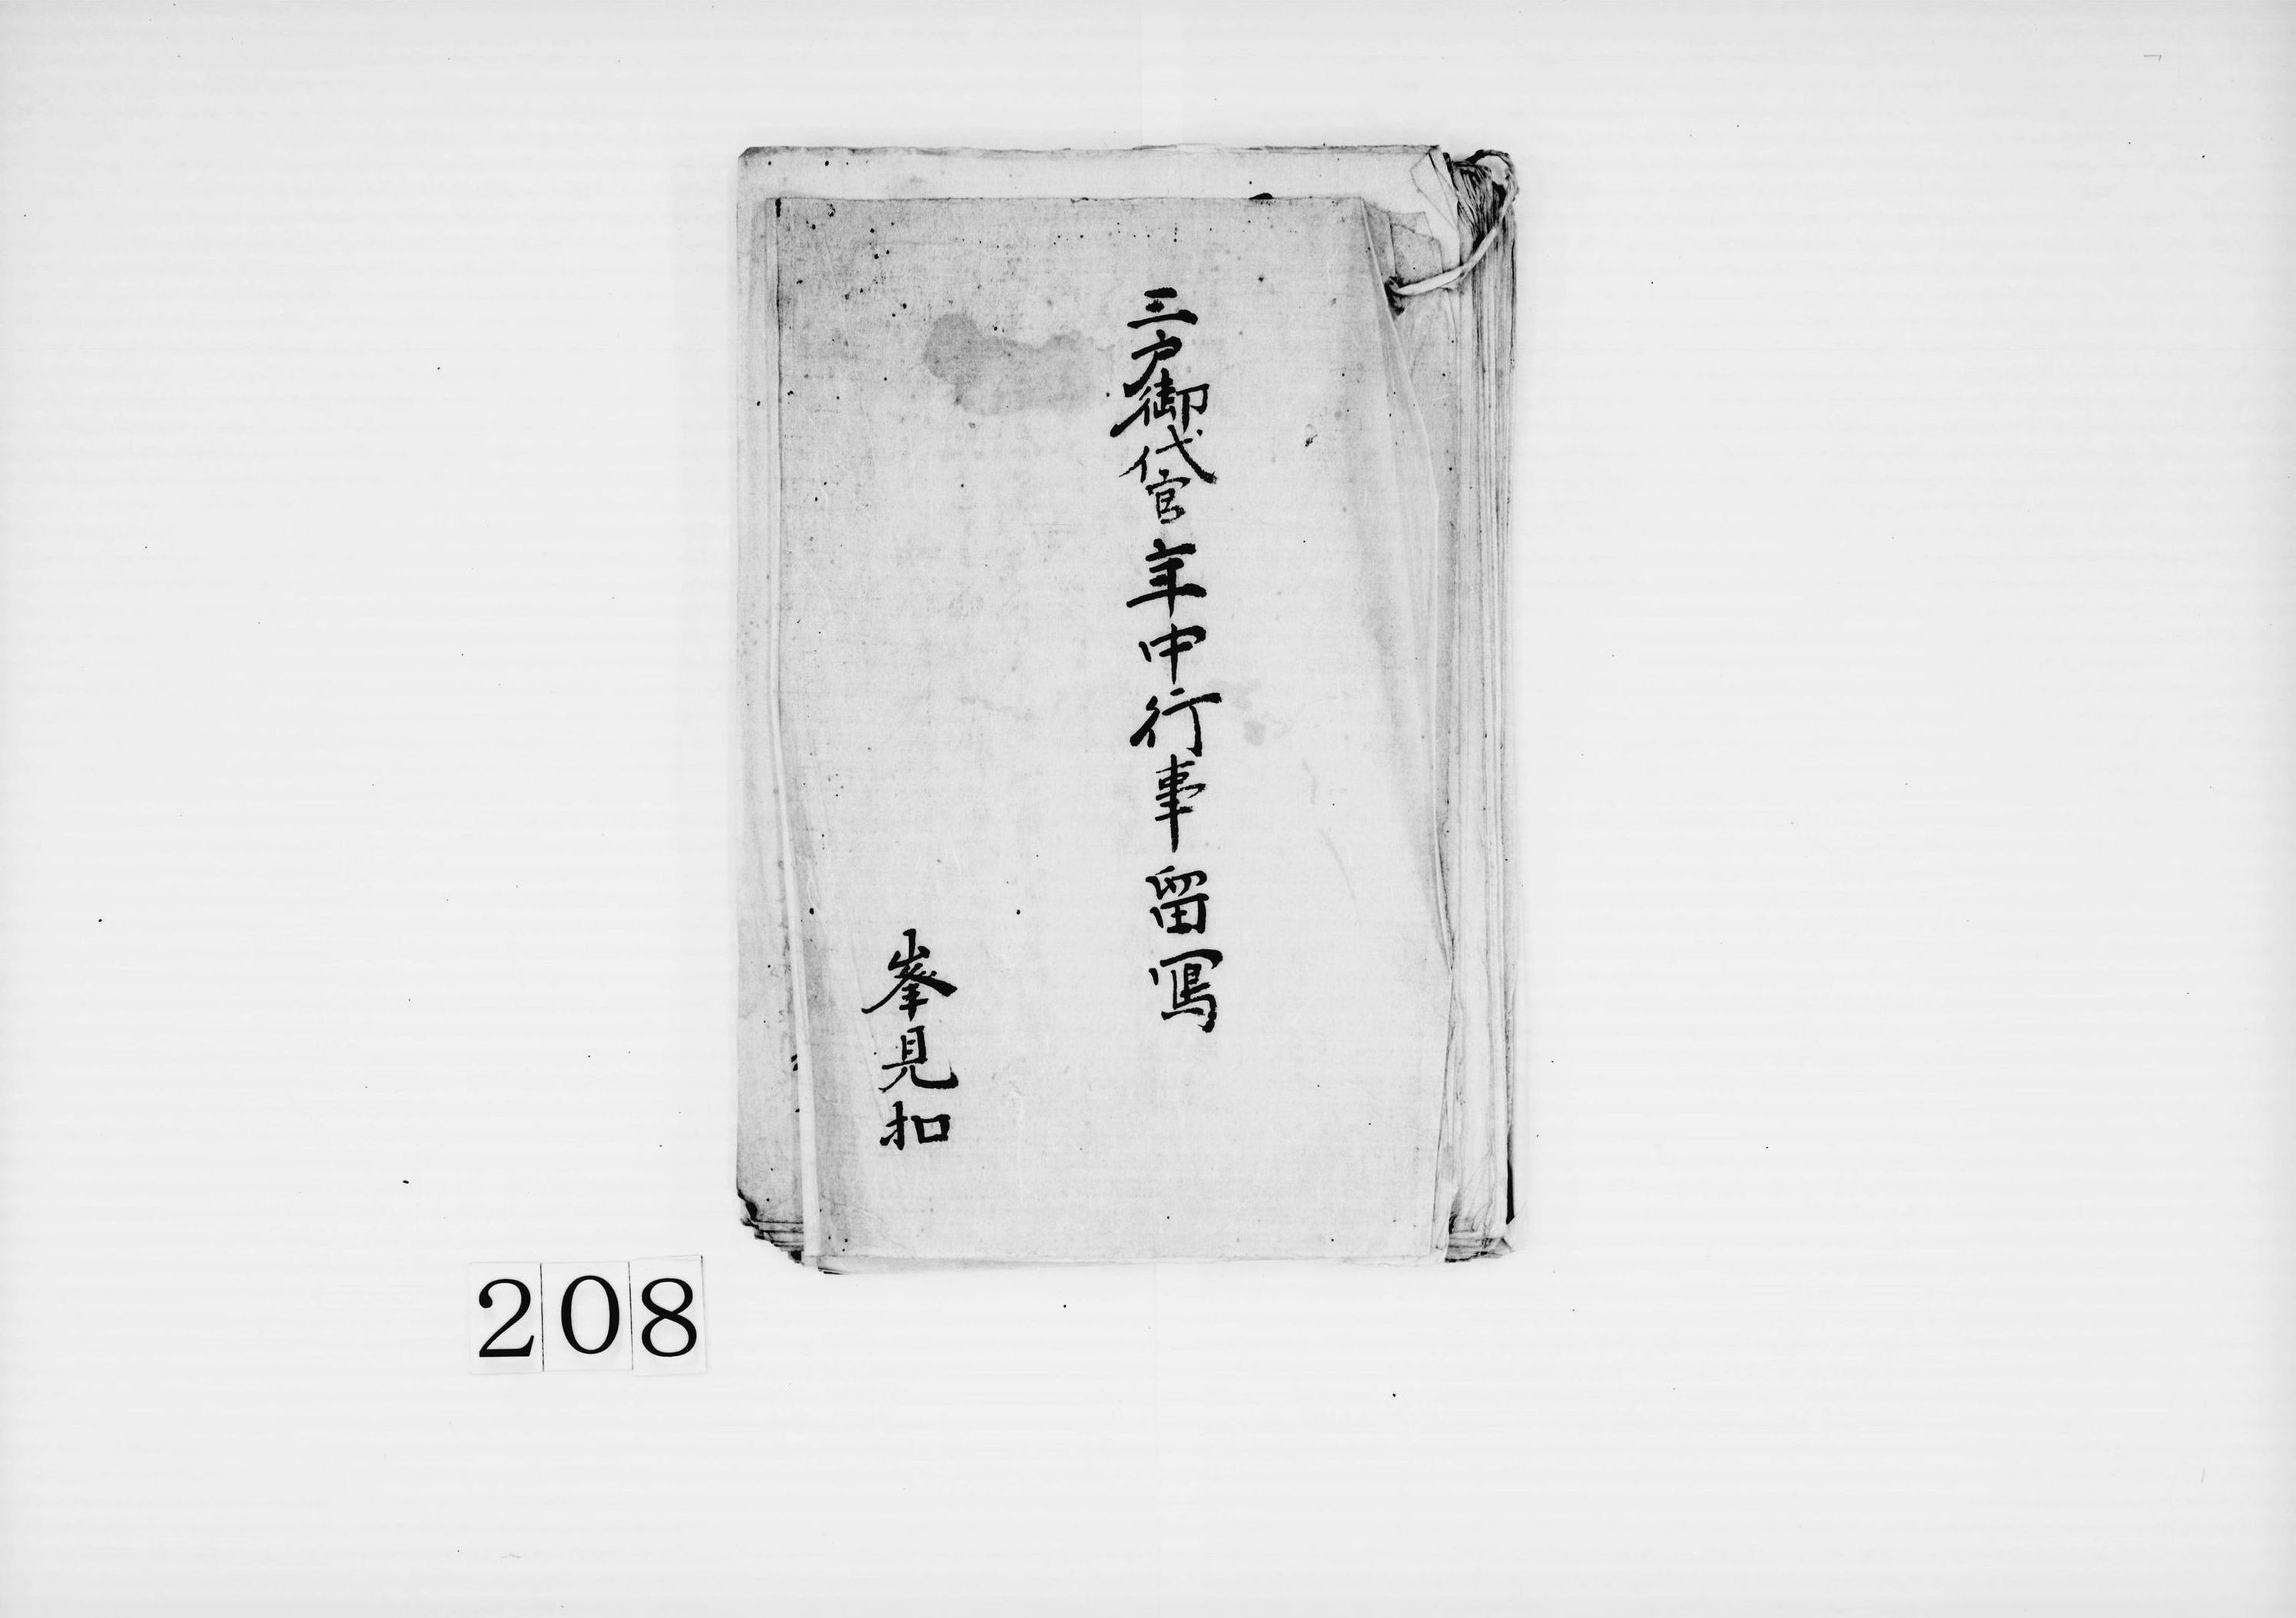 三戸御代官年中行事留寫
峯見扣
208